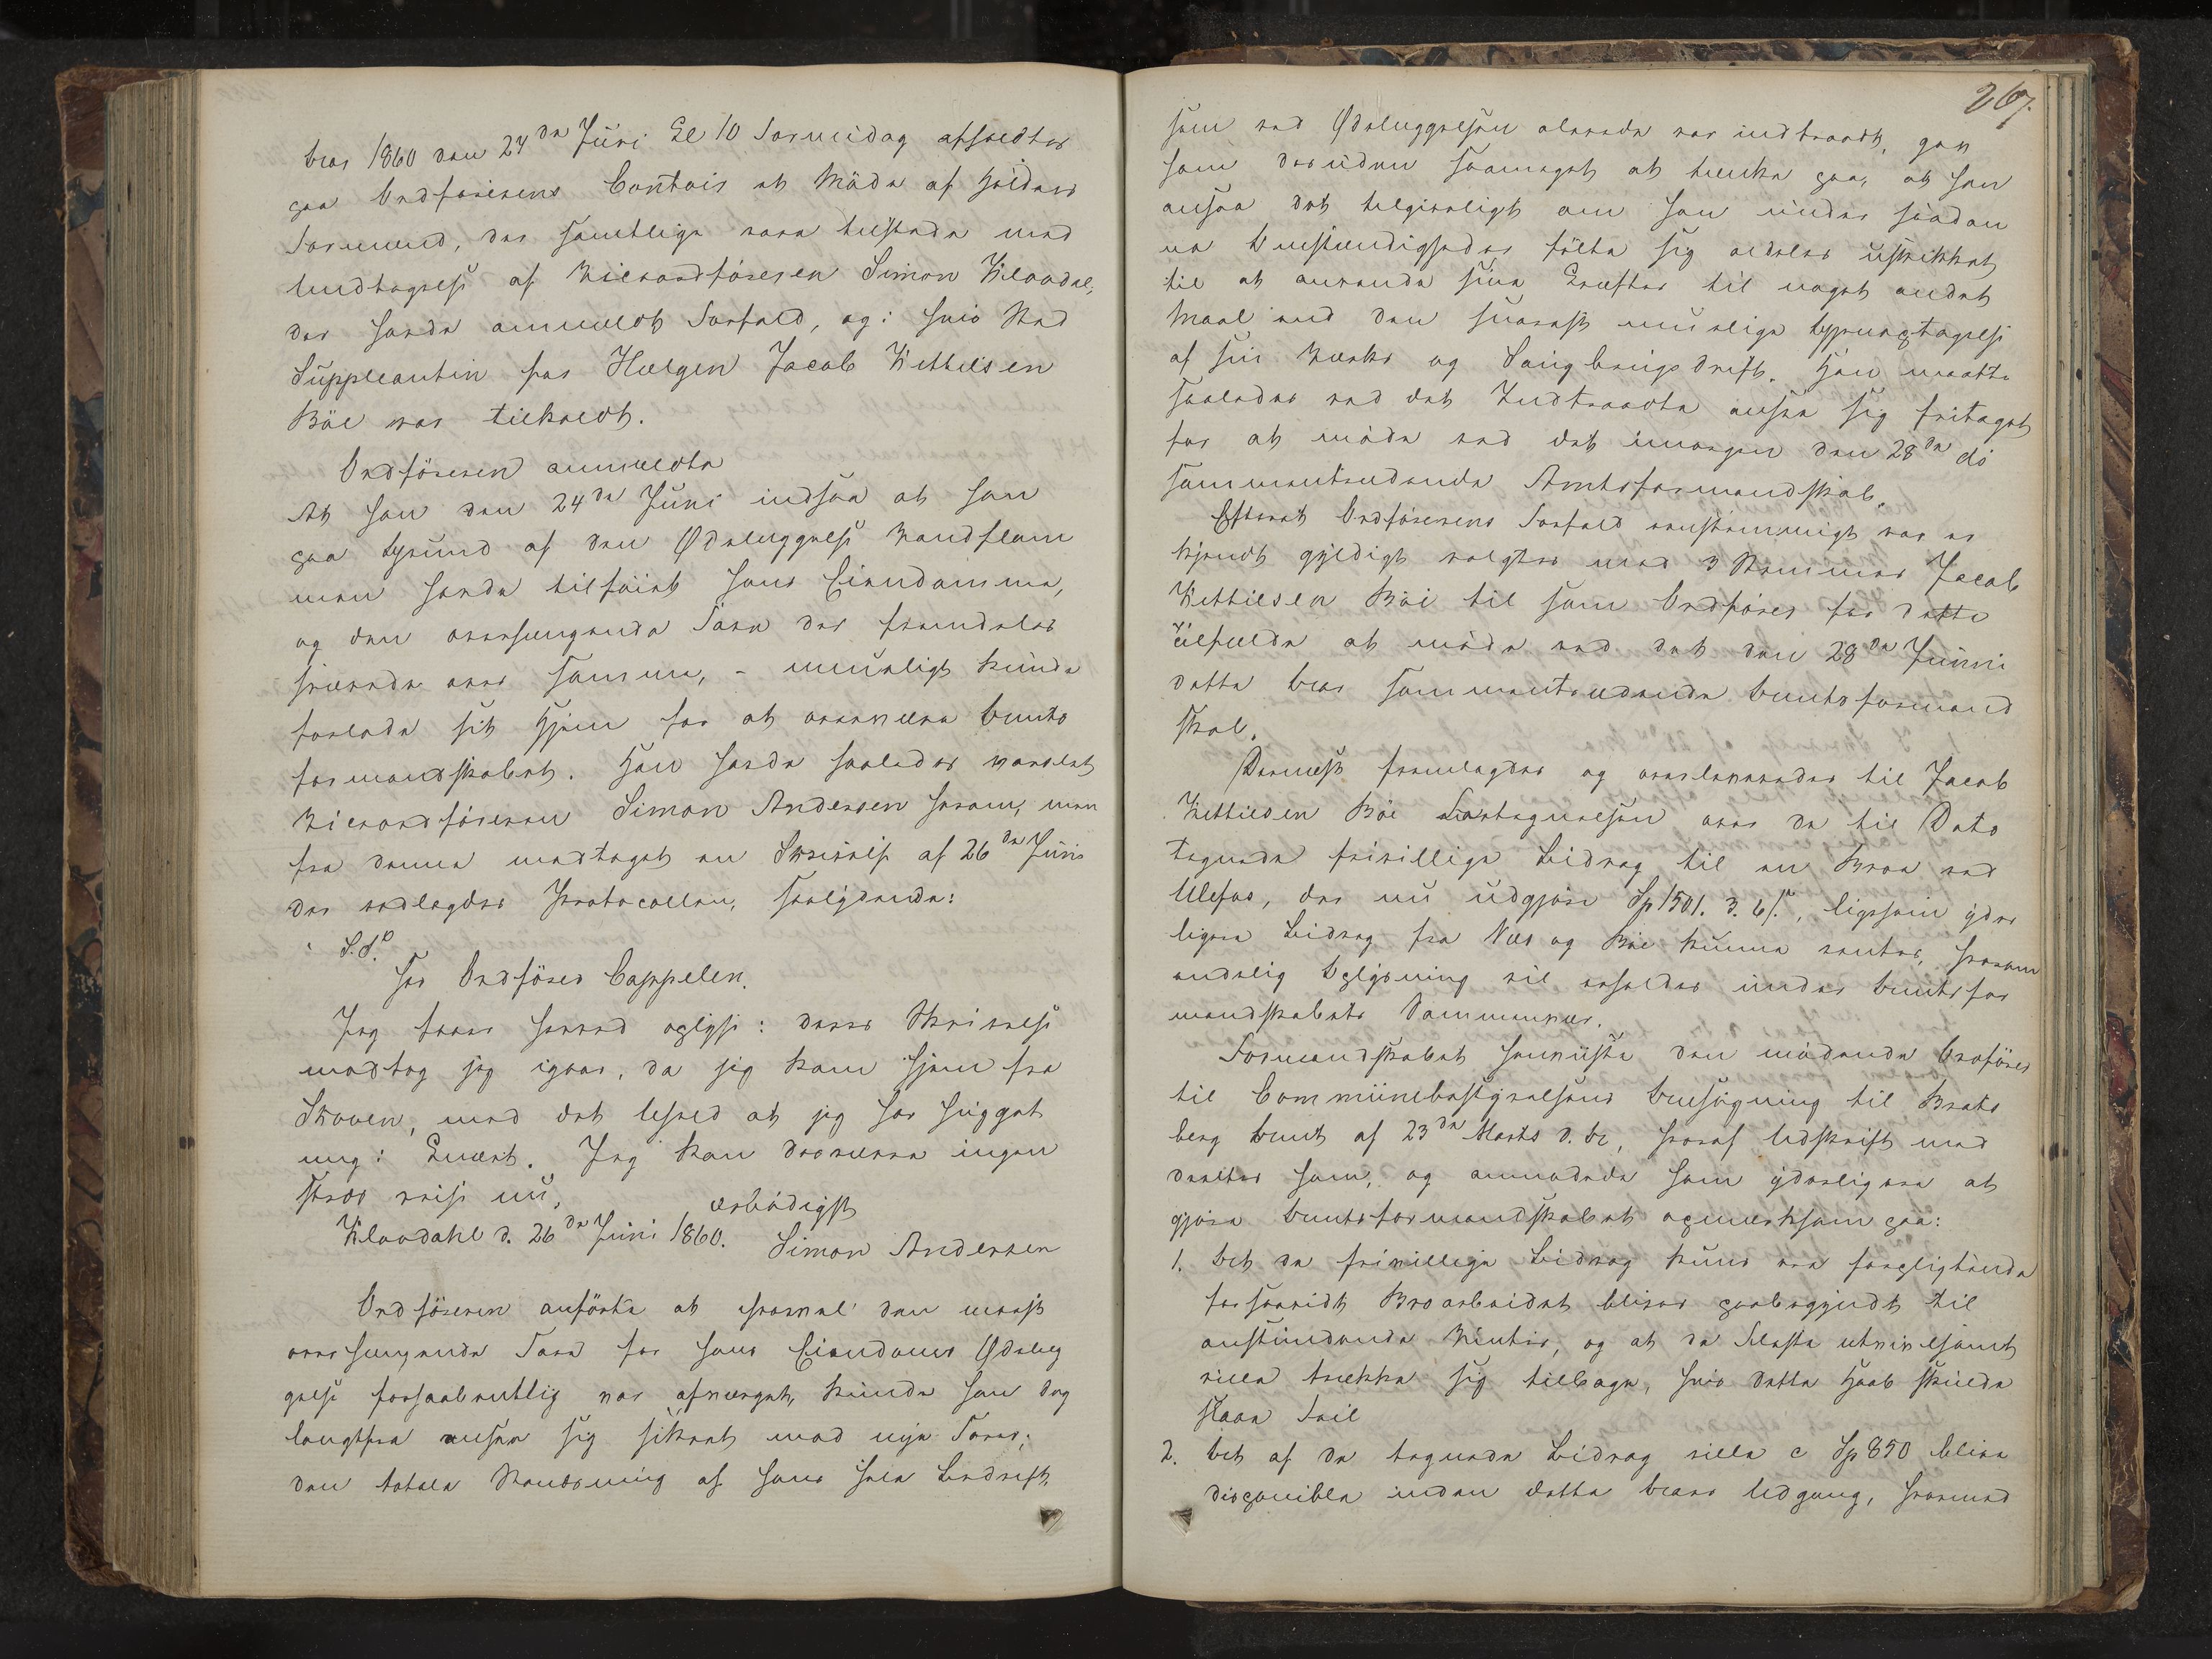 Aar 1860 den 24de Juni Kl 10 Formidag afholdtes
paa Ordførerens Contoir et Møde af Holdens
Formænd, der samtlige vare tilstede med
Undtagelse af Viceordføreren Simon Kleodal,
der havde anmældt Forfald, og i hvis Sted
Suppleantin for Helgen Jacob Kittilsen
Bøe var tilkaldt.
Ordføreren anmeldte
At han den 24de Juni indsaa at han
paa Grund af den Ødelæggelse Vandflom
men havde tilføiet hans Eiendomme,
og den overhængende Fare der fremdeles
svævede over samme, - umuligt kunde
forlade sit Hjem for at overvære Amts
formandskabet. Han havde saaledes varslet
Viceordføreren Simon Andersen herom, men
fra denne modtaget en Skrivelse af 26de Juni
der vedlægges Protocollen, saalydende:
S.T.
Hr Ordfører Cappelen.
Jeg faar herved oplyse: deres Skrivelse
modtog jeg igaar, da jeg kom hjem fra
Skoven, med det Uheld at jeg har hugget
mig i Knæet. Jeg kan desværre ingen
steds reise nu,
ærbødigst
Kleodahl d. 26de Juni 1860. Simon Andersen
Ordføreren anførte at hvorvel den mest
overhængende Fare for hans Eiendoms Ødelæg
gelse forhaabentlig var afværget, kunde han dog
langtfra ansee sig sikret mod nye Farer;
den totale Standsning af hans hele Bedrift,
267.
som ved Ødelæggelsen allerede var indtraadt, gav
ham desuden saameget at tænke paa, at han
ansaa det tilgiveligt om han under saadan
ne Omstændigheder følte sig aldeles uskikket
til at anvende sine Kræfter til noget andet
Maal end den snarest mulige Gjenoptagelse
af sin Værks og Saugbrugsdrift. Han maatte
saaledes ved det Indtraadte ansee sig fritaget
for at møde ved det imorgen den 28de ds
sammentredende Amtsformandskab.
Efterat Ordførerens Forfald eenstemmigt var er
kjendt gyldigt valgtes med 3 Stemmer Jacob
Kittilsen Bøe til som Ordfører for dette
Tilfælde at møde ved det den 28de Junni
dette Aar sammentrædende Amtsformand
skab.
Dernæst fremlagdes og overleveredes til Jacob
Kittilsen Bøe Fortegnelsen over de til Dato
tegnede frivillige Bidrag til en Broe ved
Ulefos, der nu udgjøre Sp 1501. 3. 6/., ligesom yder
ligere Bidrag fra Næs og Bøe kunne ventes, hvorom
endelig Oplysning vil erholdes under Amtsfor
mandskabets Sammenvær.
Formandskabet henviste den mødende Ordfører
til Communebestyrelsens Ansøgning til Brats
berg Amt af 23de Marts d. A., hvoraf Udskrift med
deeltes ham, og anmodede ham yderligere at
gjøre Amtsformandskabet opmærksom paa:
1. At de frivillige Bidrag kuns ere forpligtende
forsaavidt Broarbeidet bliver paabegyndt til
anstundende Vinter, og at de Fleste utvivlsomt
ville trække sig tilbage, hvis dette Haab skulde
slaae Feil
2. At af de tegnede Bidrag ville c Sp 850 blive
disponible inden dette Aars Udgang, hvormed